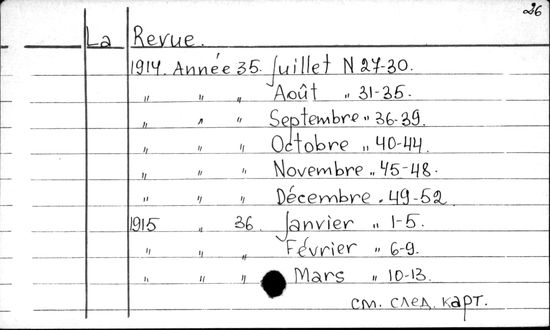 26
La Revue.
1914. Année 35. Juillet N 27-30.
„ „ „ Août „ 31-35.
„ „ „ Septembre „ 36-39.
„ „ „ Octobre „ 40-44.
„ „ „ Novembre „ 45-48.
„ „ „ Décembre „ 49-52.
1915 „ 36. Janvier „ 1-5.
„ „ „ Février „ 6-9.
„ „ „ Mars „ 10-13.
см. след. карт.